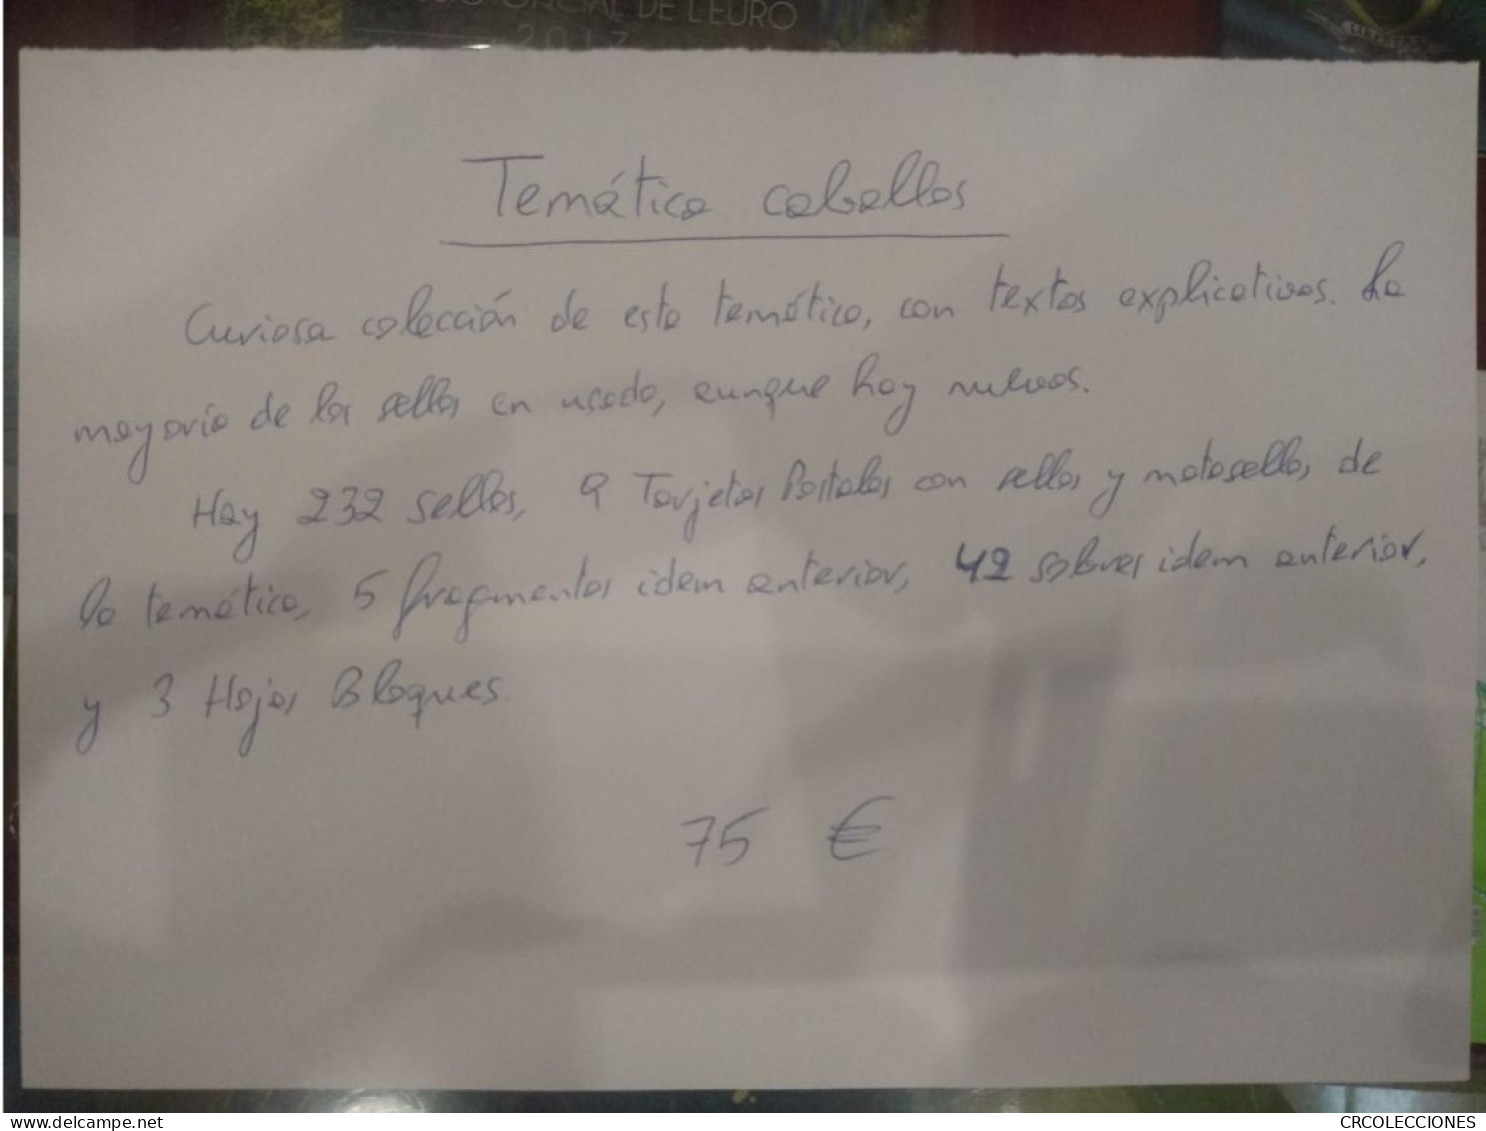 OFICIAL DE L'EURO
2017
Temática caballos
Curiosa colección de esta temática, con textos explicativos. La
mayoría de los sellos en usado, aunque hay nuevos.
Hay 232 sellos, 9 Tarjetas Postales con sellos y matasellos de
la temática, 5 fragmentos idem anterior, 42 sobres idem anterior,
y 3 Hojas Bloques.
75 €
delcampe.net
CRCOLECCIONES